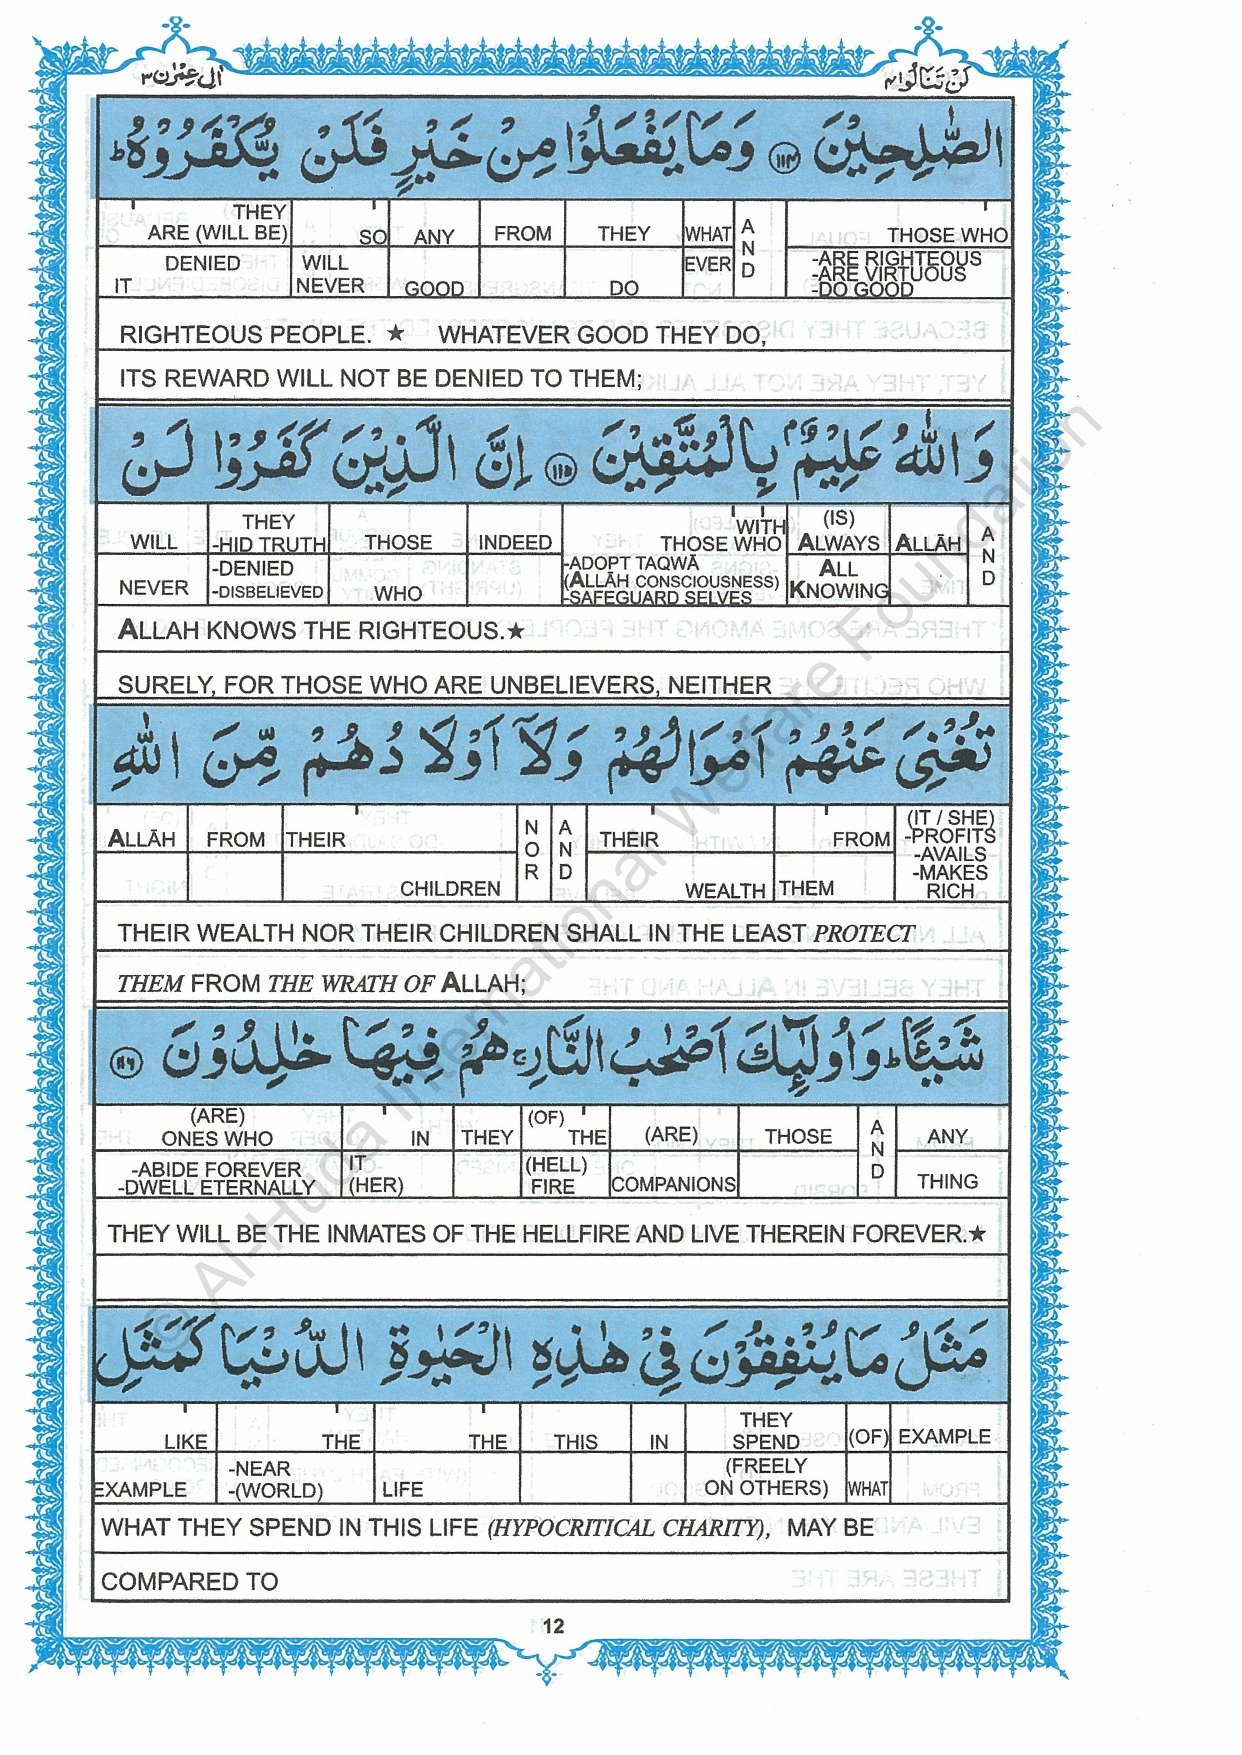 اٰل عِمْرٰن ٣
لَنْ تَنَالُوا ٤
الصّٰلِحِيْنَ ۝١١٤ وَمَا يَفْعَلُوْا مِنْ خَيْرٍ فَلَنْ يُّكْفَرُوْهُ ؕ
THEY ARE (WILL BE) SO ANY FROM THEY WHAT AND THOSE WHO
IT DENIED WILL NEVER GOOD DO EVER -ARE RIGHTEOUS -ARE VIRTUOUS -DO GOOD
RIGHTEOUS PEOPLE. ★ WHATEVER GOOD THEY DO,
ITS REWARD WILL NOT BE DENIED TO THEM;
وَاللّٰهُ عَلِيْمٌۢ بِالْمُتَّقِيْنَ ۝١١٥ اِنَّ الَّذِيْنَ كَفَرُوْا لَنْ
WILL THEY -HID TRUTH THOSE INDEED WITH THOSE WHO (IS) ALWAYS ALLĀH AND
NEVER -DENIED -DISBELIEVED WHO -ADOPT TAQWĀ (ALLĀH CONSCIOUSNESS) -SAFEGUARD SELVES ALL KNOWING
ALLAH KNOWS THE RIGHTEOUS.★
SURELY, FOR THOSE WHO ARE UNBELIEVERS, NEITHER
تُغْنِىَ عَنْهُمْ اَمْوَالُهُمْ وَلَاۤ اَوْلَادُهُمْ مِّنَ اللّٰهِ
ALLĀH FROM THEIR NOR AND THEIR FROM (IT / SHE) -PROFITS -AVAILS -MAKES RICH
CHILDREN WEALTH THEM
THEIR WEALTH NOR THEIR CHILDREN SHALL IN THE LEAST PROTECT
THEM FROM THE WRATH OF ALLAH;
شَيْـًٔا ؕ وَاُولٰٓئِكَ اَصْحٰبُ النَّارِ ۚ هُمْ فِيْهَا خٰلِدُوْنَ ۝١١٦
(ARE) ONES WHO IN THEY (OF) THE (ARE) THOSE AND ANY
-ABIDE FOREVER -DWELL ETERNALLY IT (HER) (HELL) FIRE COMPANIONS THING
THEY WILL BE THE INMATES OF THE HELLFIRE AND LIVE THEREIN FOREVER.★
مَثَلُ مَا يُنْفِقُوْنَ فِىْ هٰذِهِ الْحَيٰوةِ الدُّنْيَا كَمَثَلِ
LIKE THE THE THIS IN THEY SPEND (OF) EXAMPLE
EXAMPLE -NEAR -(WORLD) LIFE (FREELY ON OTHERS) WHAT
WHAT THEY SPEND IN THIS LIFE (HYPOCRITICAL CHARITY), MAY BE
COMPARED TO
12
© Al-Huda International Welfare Foundation